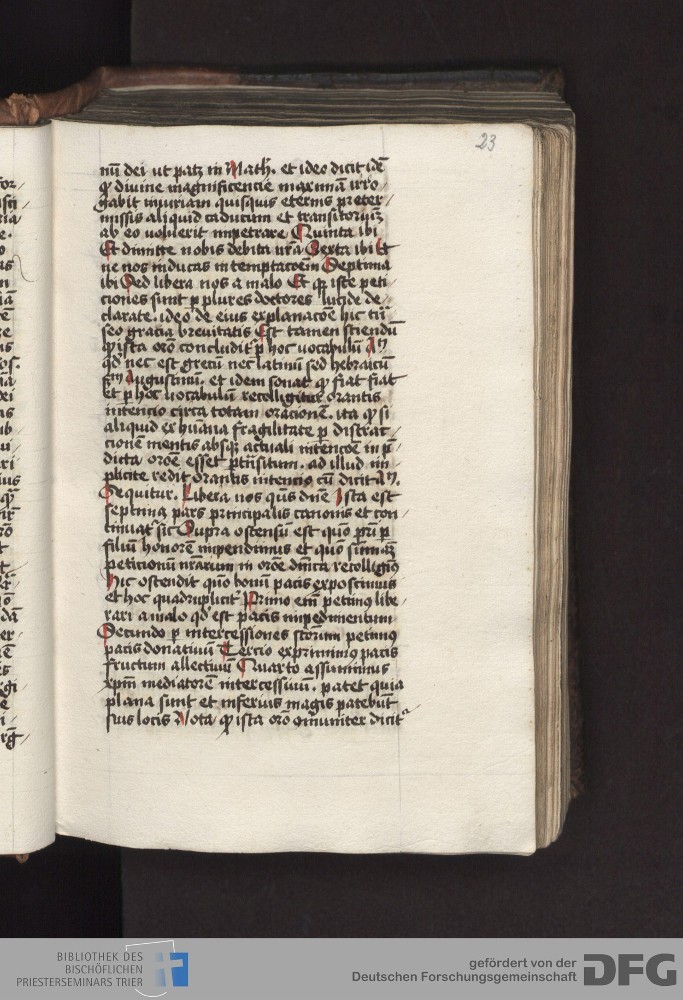 23
nū dei ut patꝫ in Math̄. et ideo dicit idē
ꝙ divine magnificencie maximā irro-
gabit iniuriam quisquis eternis preter-
missis aliquid caducum et transitoriūꝫ
ab eo voluerit impetrare Quinta ibi
Et dimitte nobis debita nr̄a Sexta ibi Et
ne nos inducas in temptacoēm Septima
ibi Sed libera nos a malo Et qꝫ iste peti-
ciones sunt ꝑ plures doctores lucide de-
clarate. ideo de eius explanacōe hic tn̄seo
gracia brevitatis Est tamen sciendū
ꝙ ista orō concludit ꝑ hoc vocabulū am̄
qd̄ nec est grecū nec latinū sed hebraicū
scd̄m Augustinū. et idem sonat ꝙ fiat fiat
et ꝑ hoc vocabulum recolligitur orantis
intencio circa totam oracionē. ita ꝙ si
aliquid ex huāna fragilitate ꝑ distrac-
cionē mentis absqꝫ actuali intencōe in p̄-
dicta orōe esset p̄tn̄situm. ad illud im-
plicite redit orantis intencio cū dicit Am̄.
Sequitur. Libera nos qūs dn̄e Ista est
septima pars principalis canonis et con-
tinuat̄ sic Supra ostensū est quō pr̄i ꝑ
filiū honorē impendimus et quō summaꝫ
peticionū nr̄arum in orōe dn̄ica recolligimꝰ
hic ostendit quō bonū pacis expostimus
et hoc quadrupliciter Primo em̄ petimꝰ libe-
rari a malo qd̄ est pacis impedimentum
Secundo ꝑ intercessiones sc̄orum petimꝰ
pacis donativū Tercio exprimimꝰ pacis
fructum allectivū Quarto assumimus
xpm̄ mediatorē intercessivū. patet quia
plana sunt et inferius magis patebūt
suis locis Nota ꝙ ista orō cōmuniter dicit
BIBLIOTHEK DES
BISCHÖFLICHEN
PRIESTERSEMINARS TRIER
gefördert von der
Deutschen Forschungsgemeinschaft
DFG